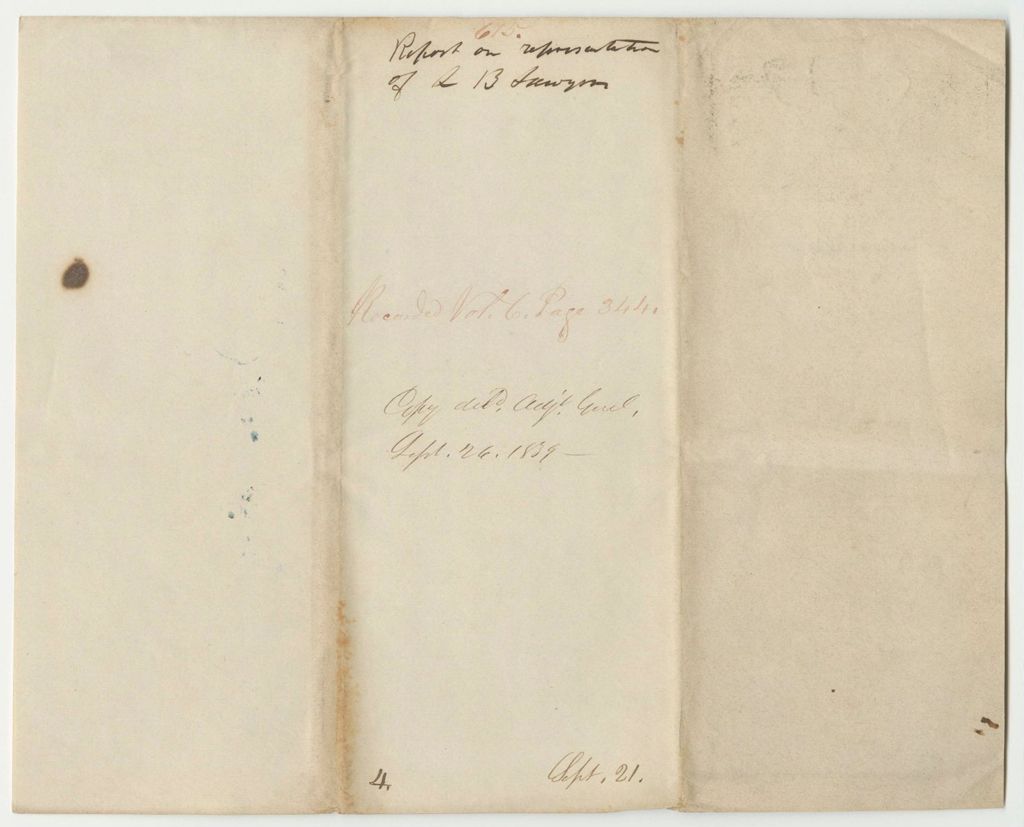 615.
Report on representation
of A B Sawyer
Recorded Vol. 6. Page 344.
Copy deld. Adjt. Genl,
Sept. 26. 1839 —
4.
Sept. 21.